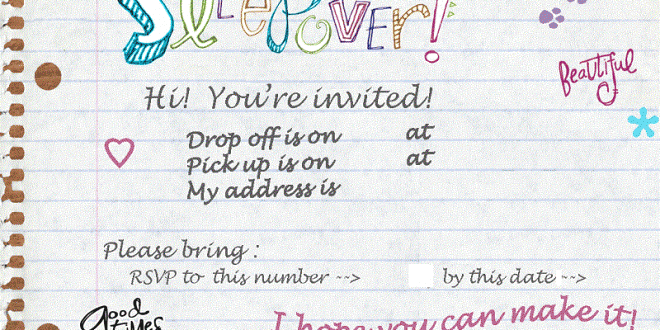 Sleepover!
Beautiful
Hi! You're invited!
Drop off is on at
Pick up is on at
My address is
Please bring :
RSVP to this number --> by this date -->
good
times
I hope you can make it!